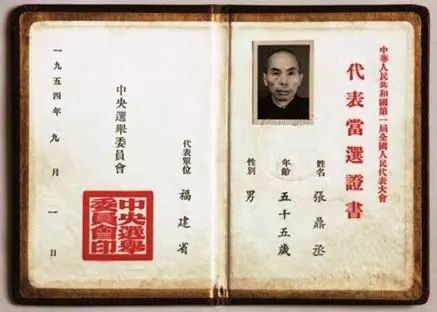 中華人民共和國第一屆全國人民代表大會
代表當選證書
姓名 張鼎丞
年齡 五十五歲
性別 男
代表單位 福建省
中央選舉委員會
一九五四年九月一日
中央選舉
委員會印